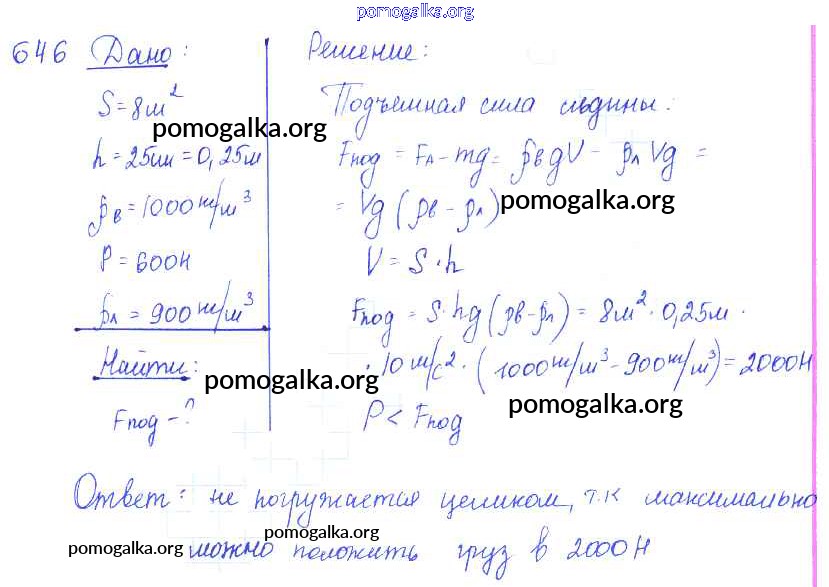 pomogalka.org
646 Дано:
S = 8 м²
pomogalka.org
h = 25 см = 0,25 м
ρв = 1000 кг/м³
P = 600 Н
ρл = 900 кг/м³
Найти:
pomogalka.org
Fпод - ?
Решение:
Подъемная сила льдины:
Fпод = FA - mg = ρв gV - ρл Vg =
= Vg (ρв - ρл)
pomogalka.org
V = S · h
Fпод = S · hg (ρв - ρл) = 8 м² · 0,25 м ·
· 10 м/с² · (1000 кг/м³ - 900 кг/м³) = 2000 Н
P < Fпод
pomogalka.org
Ответ: не погружается целиком, т.к максимально
pomogalka.org
можно положить груз в 2000 Н
pomogalka.org